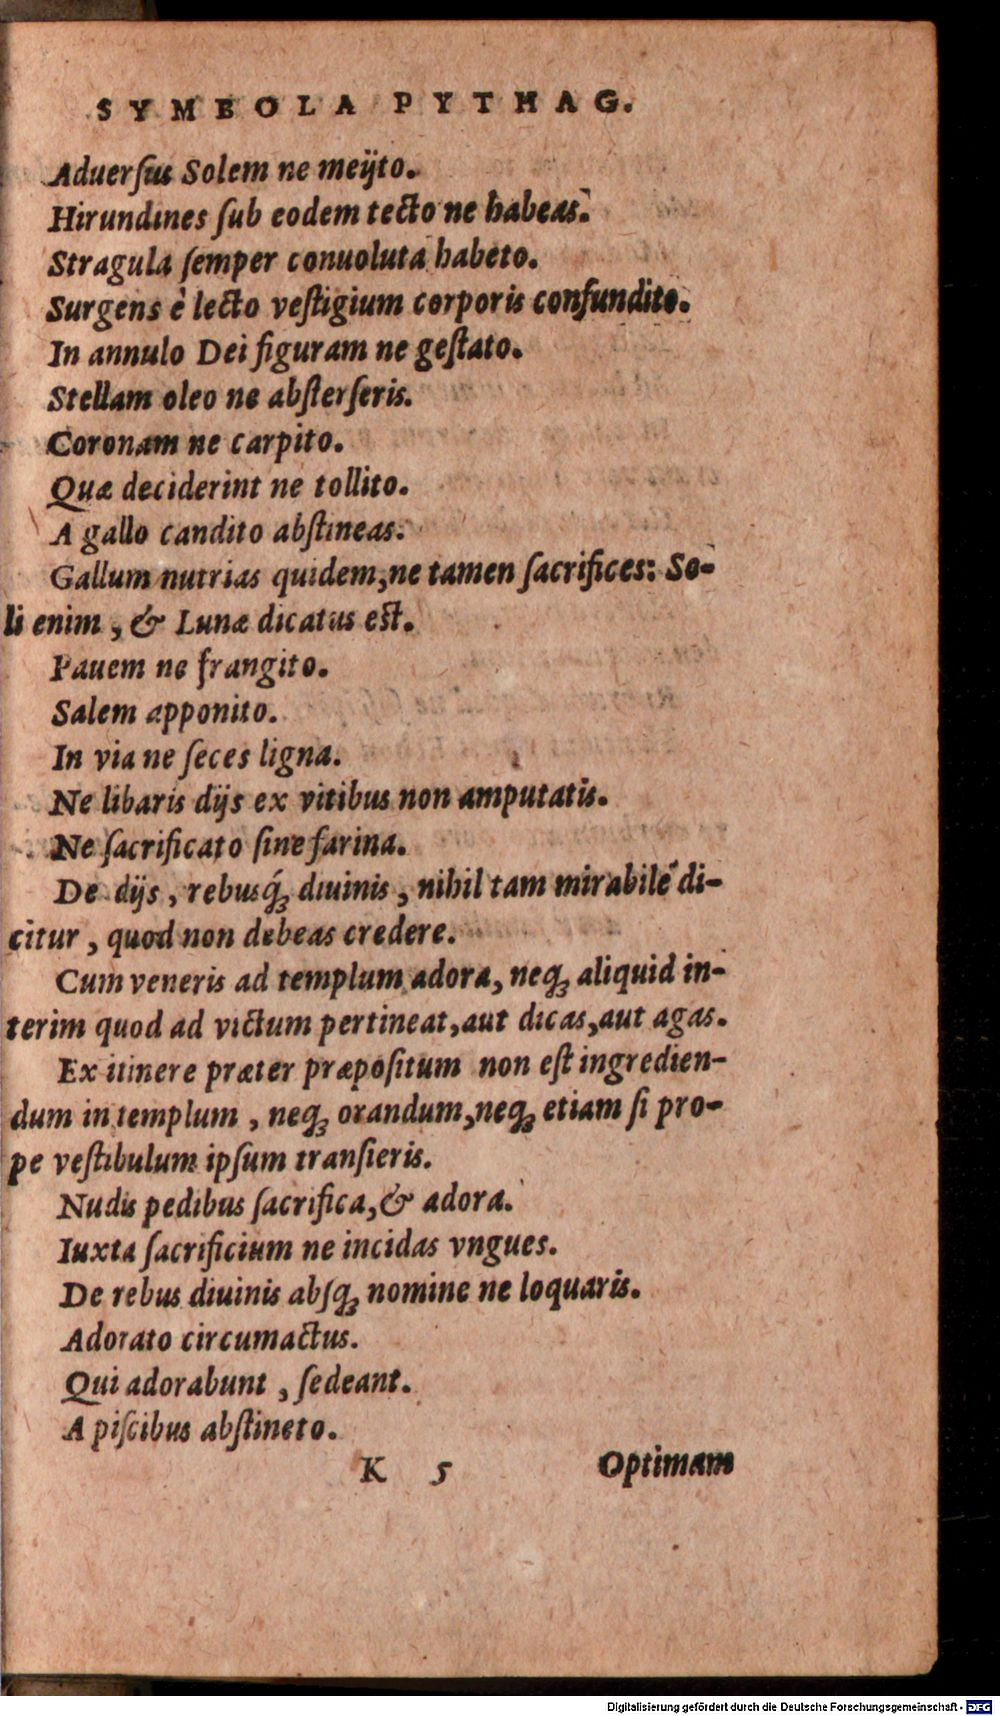 SYMBOLA PYTHAG.
Aduerſus Solem ne meijto.
Hirundines ſub eodem tecto ne habeas.
Stragula ſemper conuoluta habeto.
Surgens è lecto veſtigium corporis confundito.
In annulo Dei figuram ne geſtato.
Stellam oleo ne abſterſeris.
Coronam ne carpito.
Quæ deciderint ne tollito.
A gallo candito abſtineas.
Gallum nutrias quidem, ne tamen ſacrifices: So-
li enim, & Lunæ dicatus est.
Pauem ne frangito.
Salem apponito.
In via ne ſeces ligna.
Ne libaris dijs ex vitibus non amputatis.
Ne ſacrificato ſine farina.
De dijs, rebusq́ꝫ diuinis, nihil tam mirabile di-
citur, quod non debeas credere.
Cum veneris ad templum adora, neqꝫ aliquid in-
terim quod ad victum pertineat, aut dicas, aut agas.
Ex itinere præter præpoſitum non eſt ingredien-
dum in templum, neqꝫ orandum, neqꝫ etiam ſi pro-
pe veſtibulum ipſum tranſieris.
Nudis pedibus ſacrifica, & adora.
Iuxta ſacrificium ne incidas vngues.
De rebus diuinis abſqꝫ nomine ne loquaris.
Adorato circumactus.
Qui adorabunt, ſedeant.
A piſcibus abſtineto.
K 5 Optimam
Digitalisierung gefördert durch die Deutsche Forschungsgemeinschaft - DFG